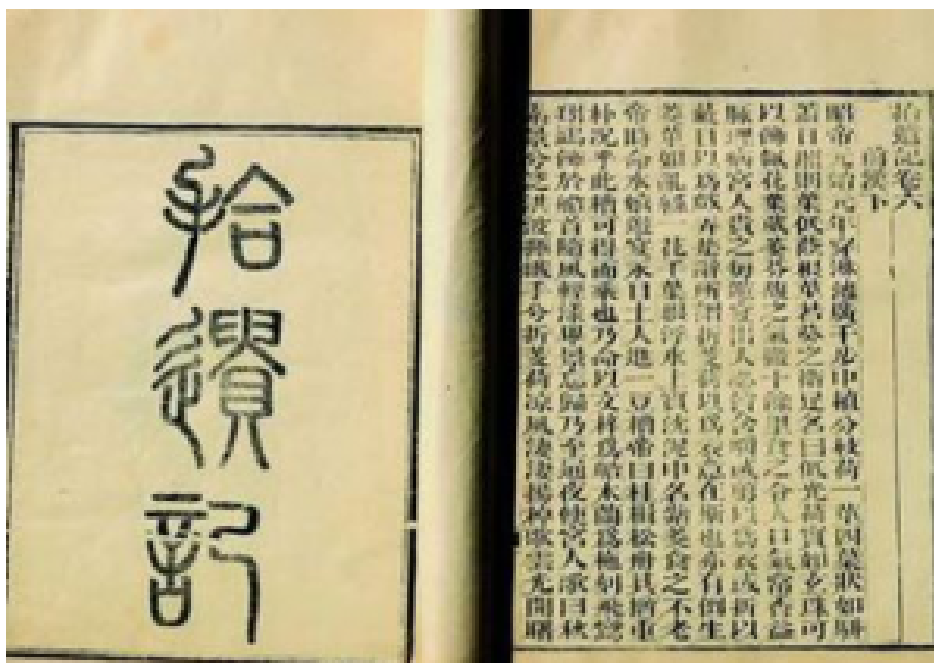 拾遺記
拾遺記卷六
前漢下
昭帝元始元年穿淋池廣千步中植分枝荷一莖四葉狀如駢
葢日照則葉低蔭根莖若葵之衛足名曰低光荷實如玄珠可
以飾佩花葉萎芬馥之氣徹十餘里食之令人口氣常香益
脉理病宮人貴之每遊宴出入必皆含嚼或剪以爲衣或折以
蔽日以爲戲弄楚辭所謂折芰荷以爲衣意在斯也亦有倒生
菱莖如亂絲一花千葉根浮水上實沈泥中名紫菱食之不老
帝時命水嬉遊宴永日土人進一豆槽帝曰桂楫松舟其猶重
朴況乎此槽可得而乘也乃命以文梓爲船木蘭爲柂刻飛鸞
翔鷁飾於船首隨風輕漾畢景忘歸乃至通夜使宮人歌曰秋
素景兮泛洪波揮纖手兮折芰荷涼風淒淒揚棹歌雲光開曙